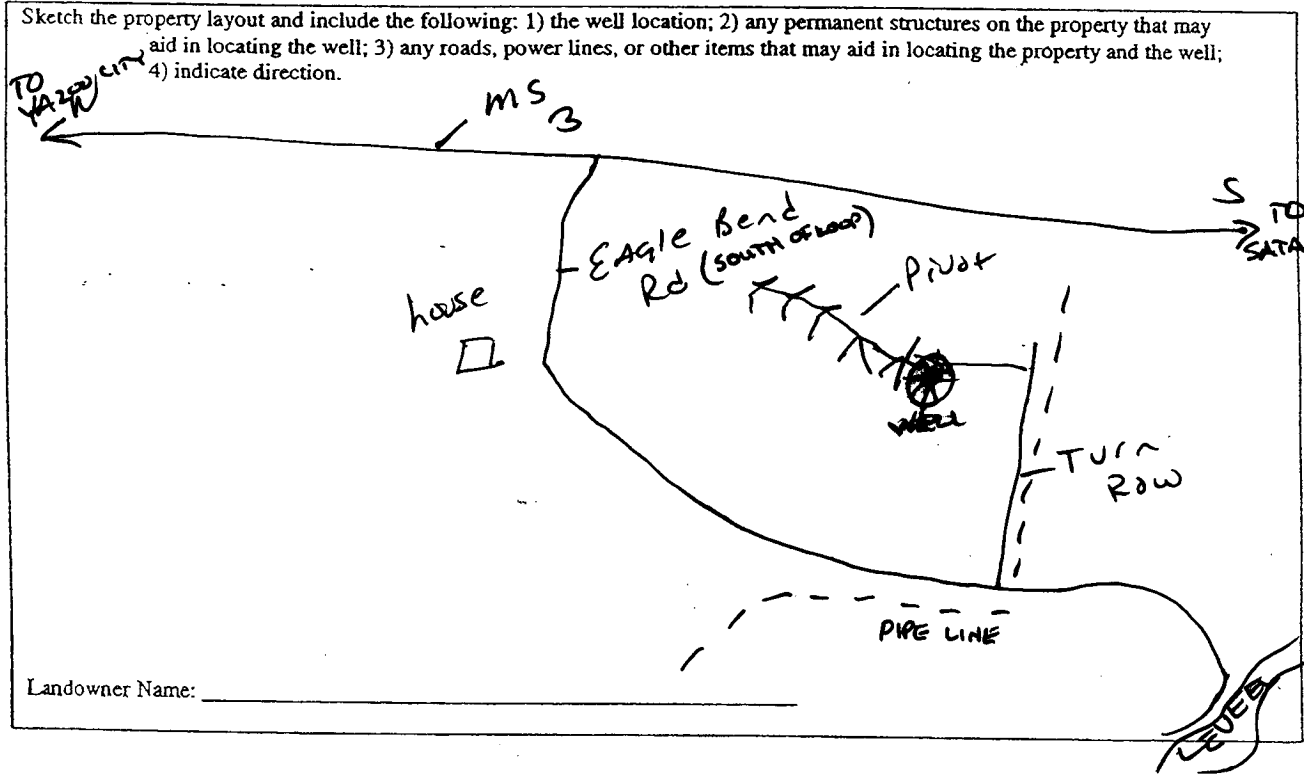 Sketch the property layout and include the following: 1) the well location; 2) any permanent structures on the property that may
aid in locating the well; 3) any roads, power lines, or other items that may aid in locating the property and the well;
4) indicate direction.
TO
YAZOO CITY
N
MS
3
S
TO
SATA
EAGle Bend
Rd (SOUTH OF LOOP)
Pivot
house
WELL
Turn
Row
PIPE LINE
Landowner Name:
LEVEE